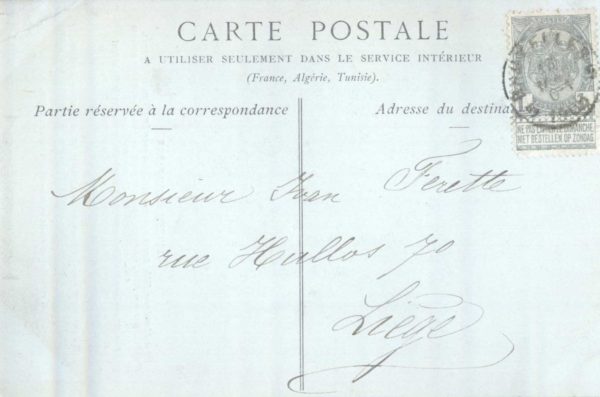 CARTE POSTALE
A UTILISER SEULEMENT DANS LE SERVICE INTÉRIEUR
(France, Algérie, Tunisie).
Partie réservée à la correspondance
Adresse du destina
NE PAS LIVRER LE DIMANCHE
NIET BESTELLEN OP ZONDAG
Monsieur Ivan Ferette
rue Hullos 70
Liège